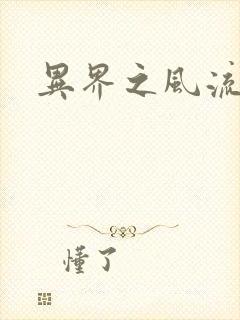 異界之風流
懂了